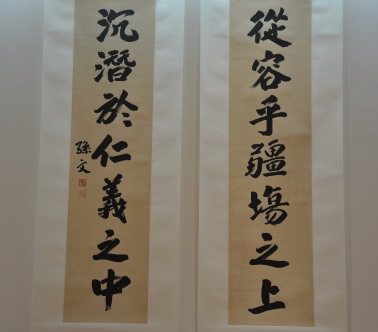 從容乎疆場之上
沉潛於仁義之中
孫文